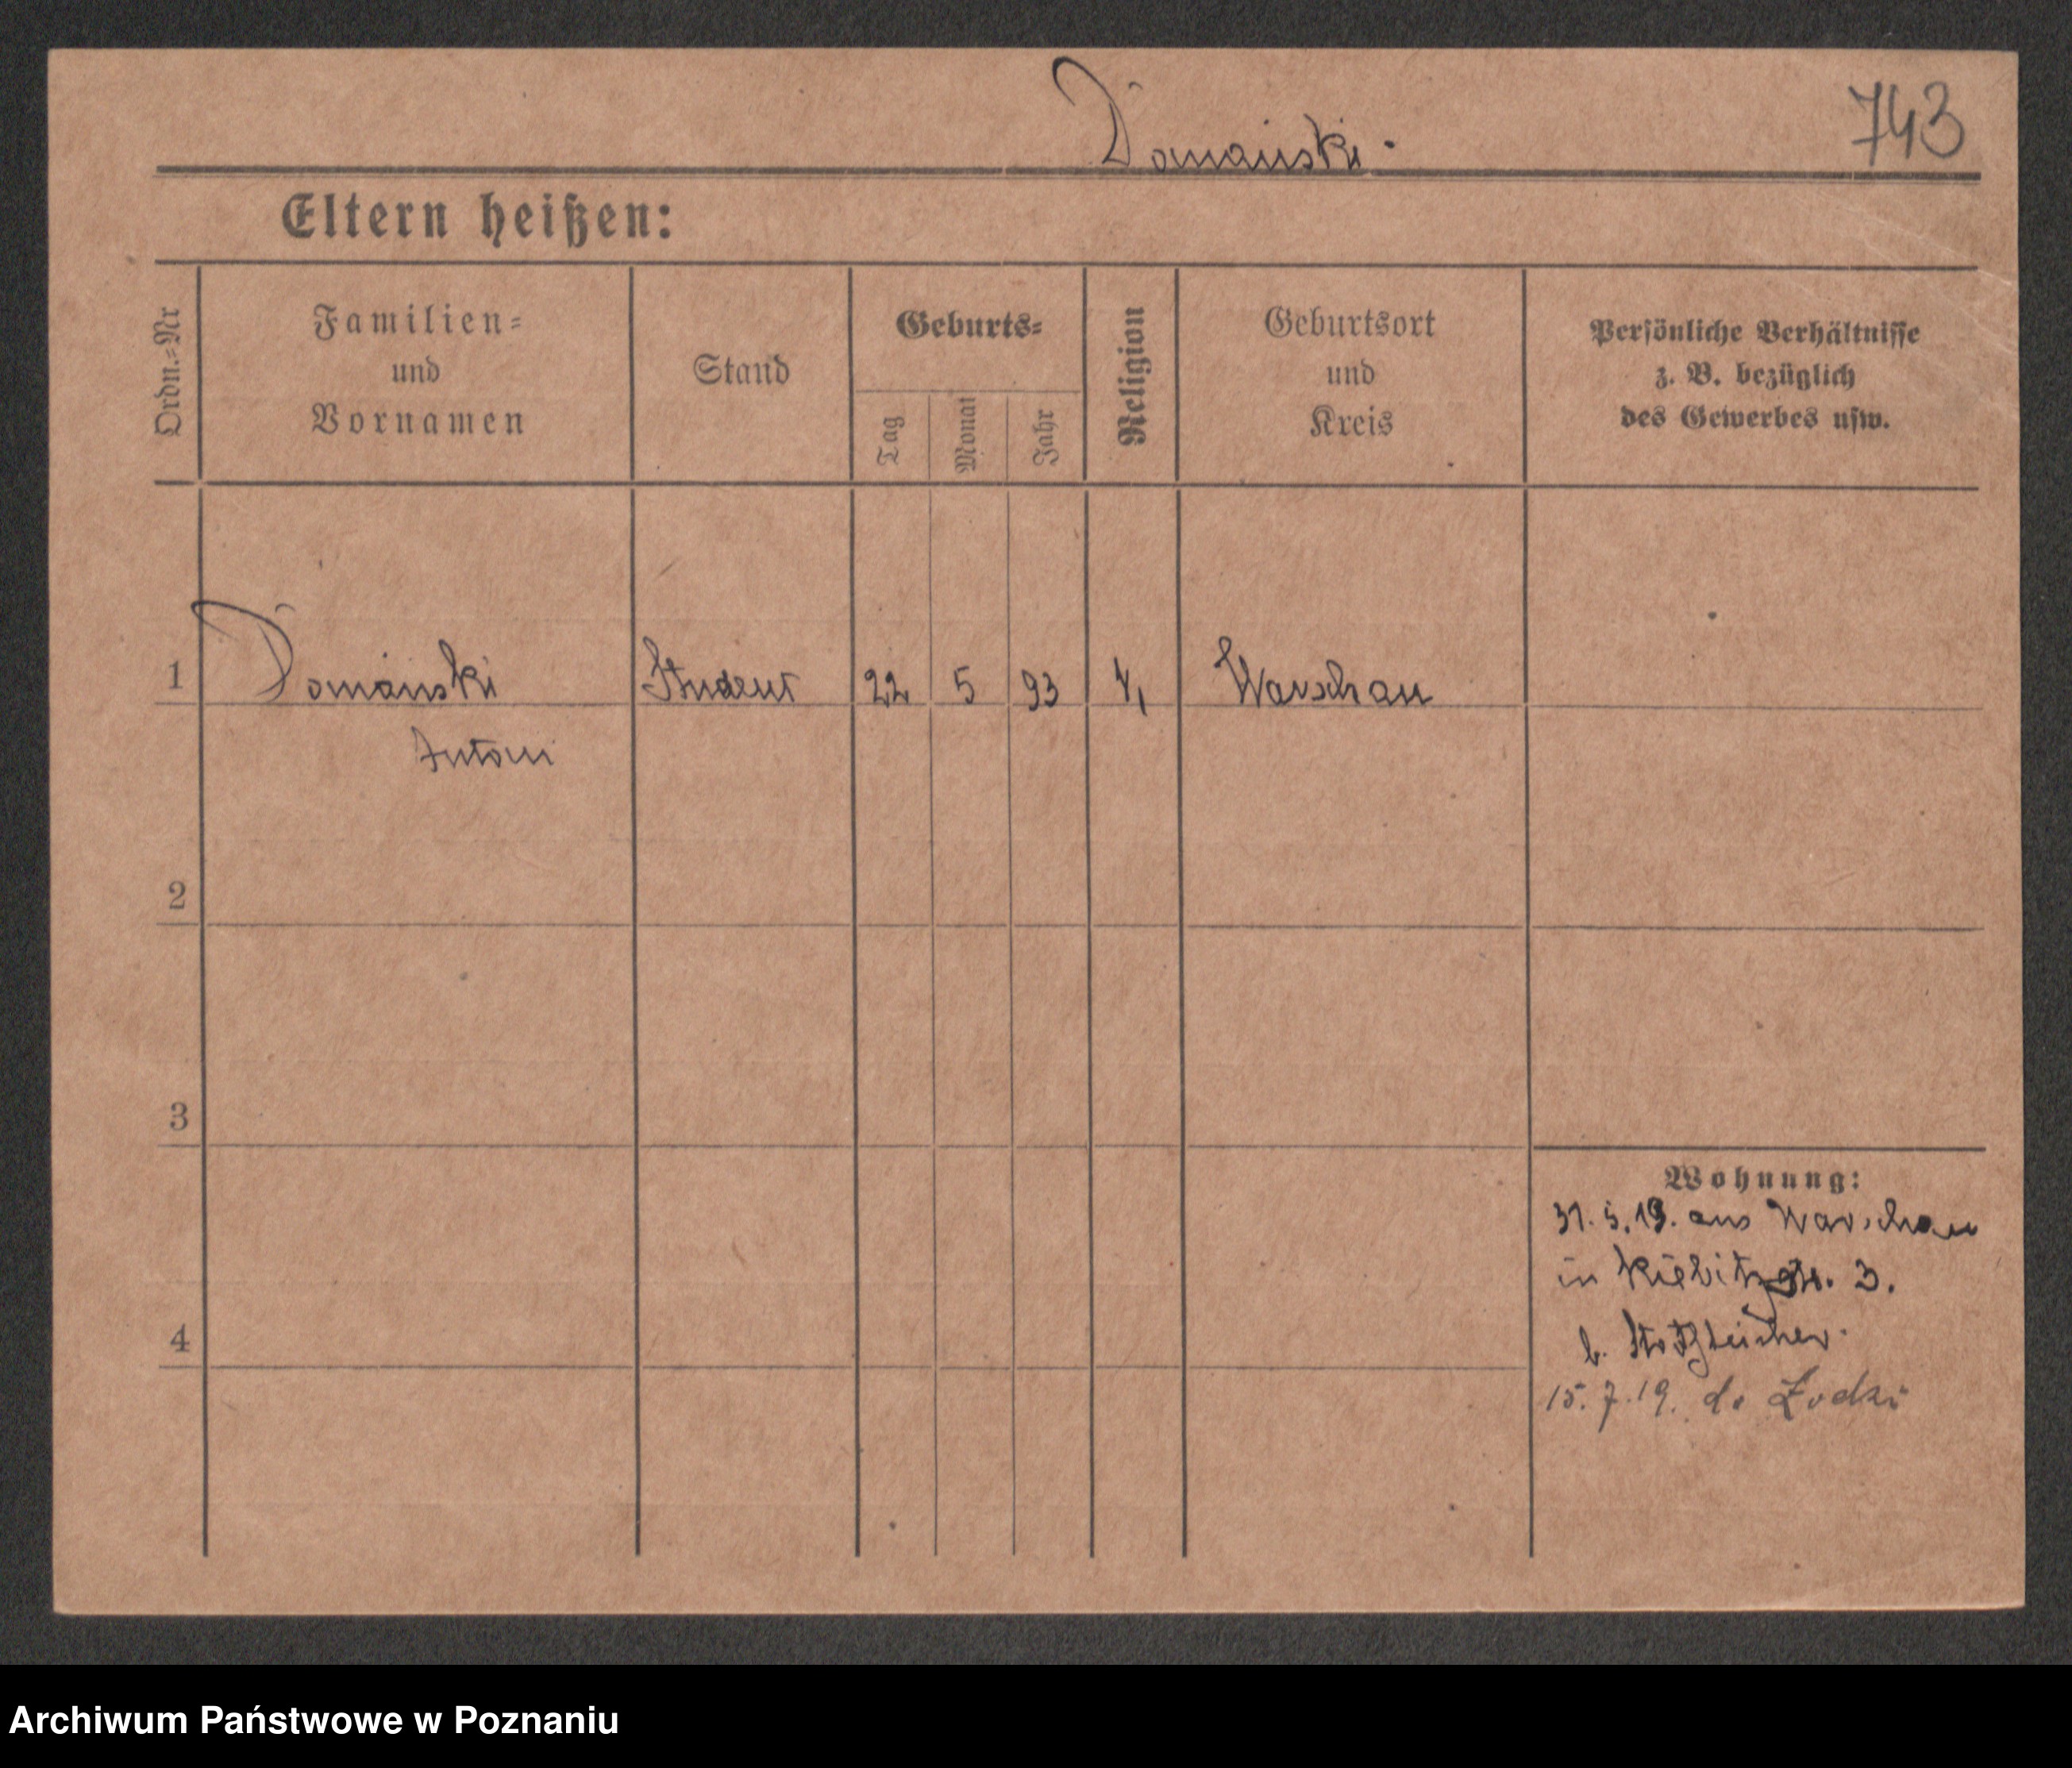 Domański.
743
Eltern heißen:
Ordn.-Nr
Familien-
und
Vornamen
Stand
Geburts-
Tag
Monat
Jahr
Religion
Geburtsort
und
Kreis
Persönliche Verhältnisse
z. B. bezüglich
des Gewerbes usw.
1 Domański Student 22 5 93 Warschau
Antoni
2
3
4
Wohnung:
31.5.19. aus Warschau
in Kiebitzstr. 3.
b.
15.7.19. do Łodzi
Archiwum Państwowe w Poznaniu